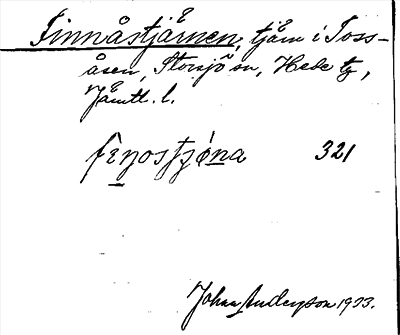 Finnåstjärnen, tjärn i Toss-
åsen, Storsjö sn, Hede tg,
Jämtl. l.
fɪŋostjɷ́na 321
Johan Anderson 1933.